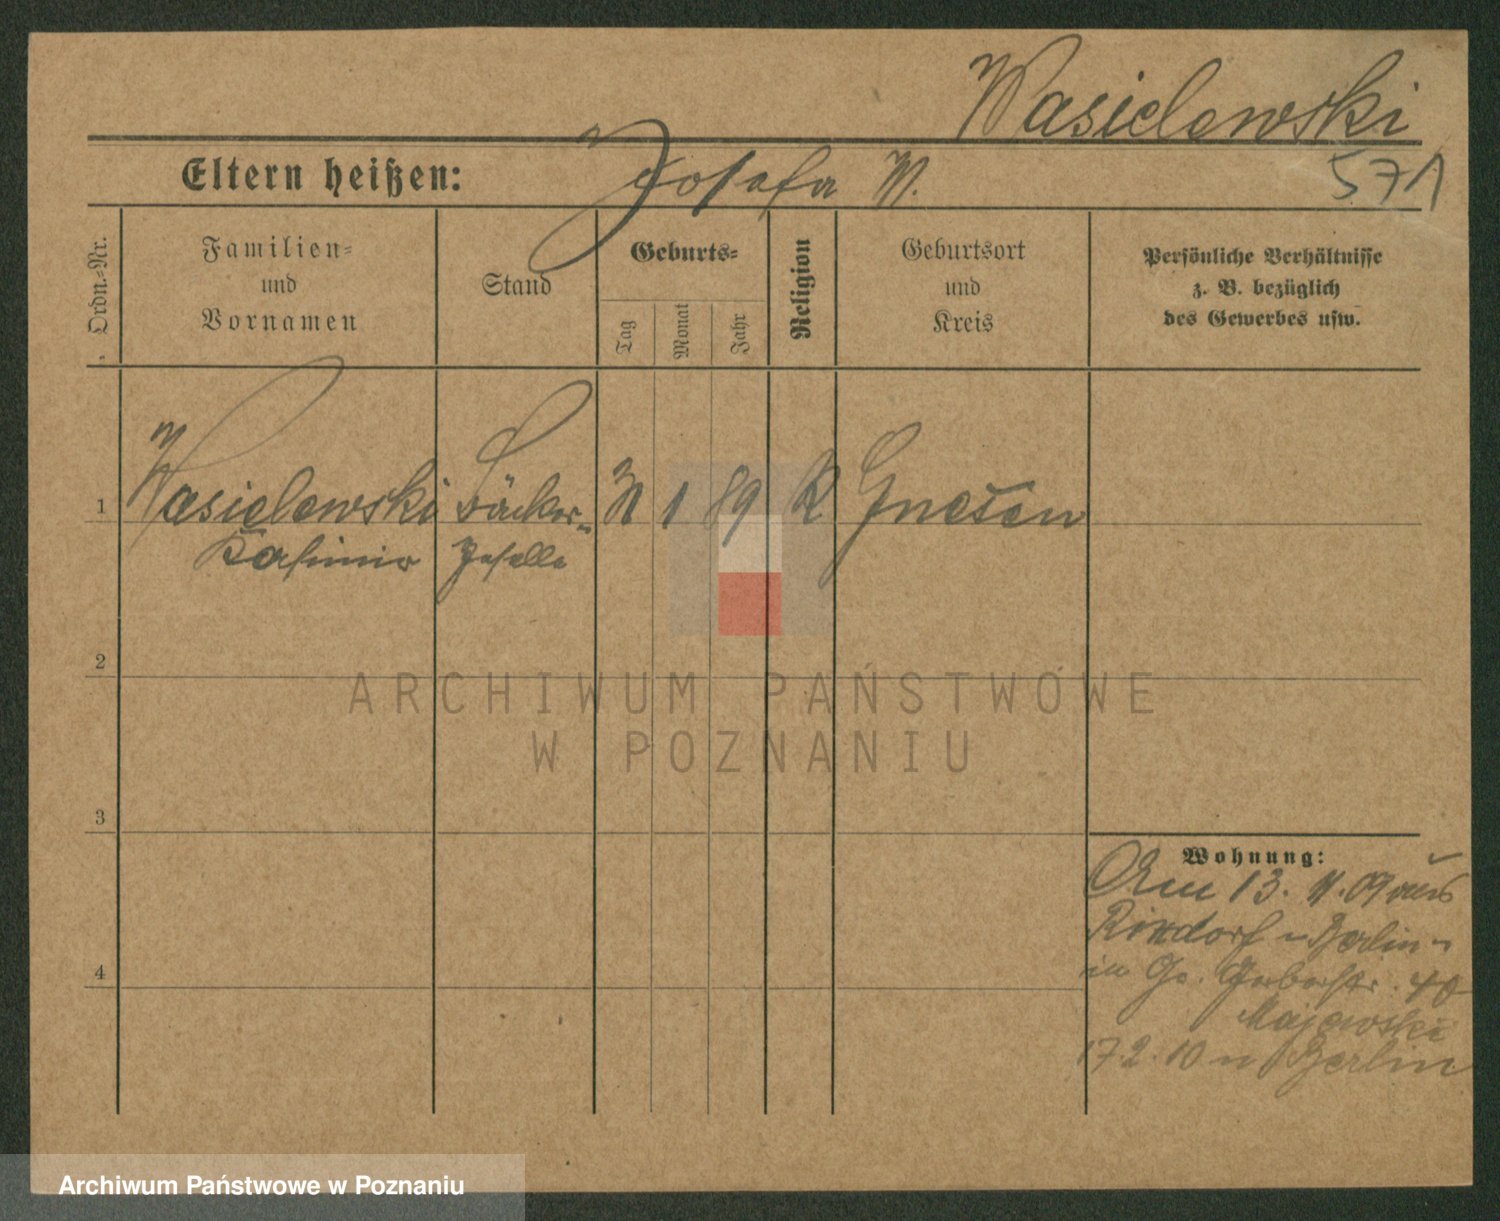 Wasielewski
571
Eltern heißen: Josefa W.
Ordn.-Nr.
Familien-
und
Vornamen
Stand
Geburts-
Tag
Monat
Jahr
Religion
Geburtsort
und
Kreis
Persönliche Verhältnisse
z. B. bezüglich
des Gewerbes usw.
1 Wasielewski Bäcker- 1 89 K Gnesen
Kasimir Geselle
2
3
4
Wohnung:
Am 13. 11. 09 aus
Rixdorf - Berlin -
in Ge. Gerberstr. 40
Majewski
17.2.10 n Berlin
ARCHIWUM PAŃSTWOWE
W POZNANIU
Archiwum Państwowe w Poznaniu